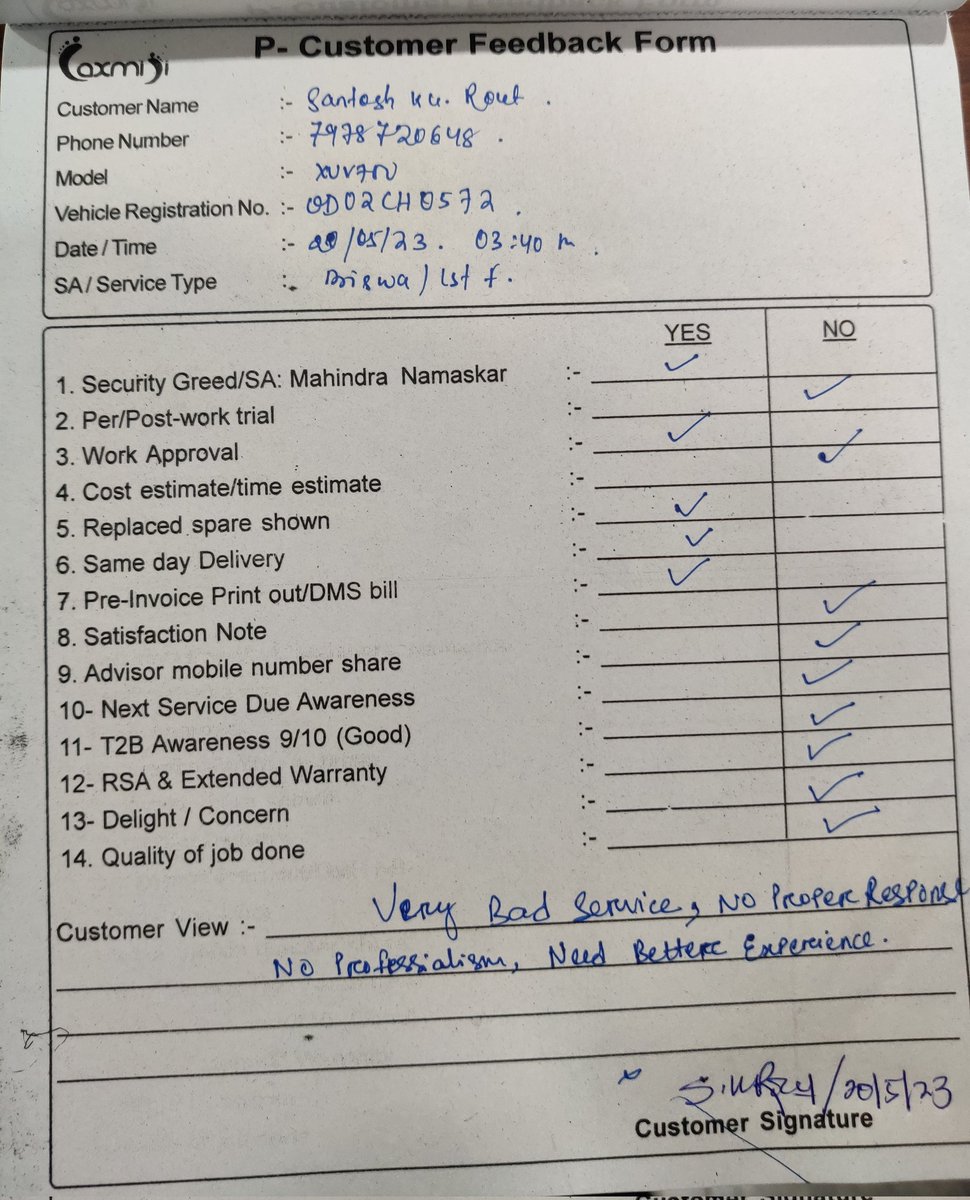 P- Customer Feedback Form
Laxmiji
Customer Name :- Santosh Ku. Rout .
Phone Number :- 7978720648 .
Model :- XUV700
Vehicle Registration No. :- OD02CH0572 .
Date / Time :- 20/05/23 . 03:40 m .
SA / Service Type :- Biswa / 1st f .
YES NO
1. Security Greed/SA: Mahindra Namaskar :- ✓
2. Per/Post-work trial :- ✓
3. Work Approval :- ✓
4. Cost estimate/time estimate :- ✓
5. Replaced spare shown :- ✓
6. Same day Delivery :- ✓
7. Pre-Invoice Print out/DMS bill :- ✓
8. Satisfaction Note :- ✓
9. Advisor mobile number share :- ✓
10- Next Service Due Awareness :- ✓
11- T2B Awareness 9/10 (Good) :- ✓
12- RSA & Extended Warranty :- ✓
13- Delight / Concern :- ✓
14. Quality of job done :- ✓
Customer View :- Very Bad Service, No Proper Respons
No Professialism, Need Betterc Experience.
20/5/23
Customer Signature